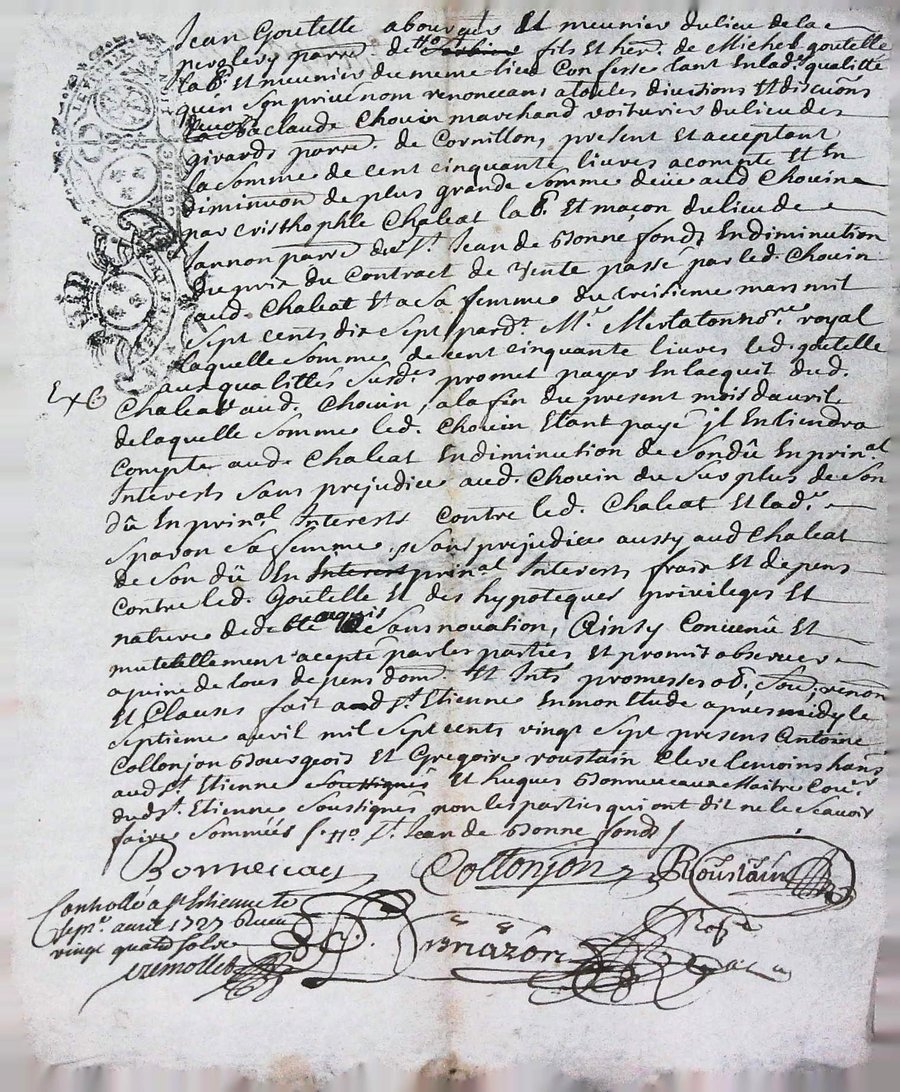 Jean Goutelle abourgés Et meunier dulieu dela
parre de fils Et hér. de Michel goutelle
lab. Et meunier du meme lieu Confesse tant En lad. qualitté
quen Son privé nom renonceant a toutes divisions Et discuõns
devoir Claude Chovin marchand voiturier dulieu des
girards parre. de Cornillon, présent Et acceptant
la Somme de cent cinquante livres acompte Et En
diminuõn de plus grande Somme deüe aud Chovin
par cristhophle Chaleat lab. Et maçon dulieu de
Jannon parre du St. Jean de Bonnefonds En diminution
du prix du Contract de vente passé par led. Chovin
aud. Chaleat Et a Sa femme du treisieme mars mil
Sept cents dix Sept pardt. Me. nore. royal
laquelle Somme de cent cinquante livres led. goutelle
aux qualittés Susdes. promet payer En lacquit dud.
Chaleat aud. Chovin, a la fin du present mois davril
de laquelle Somme led. Chovin Etant payé jl En tiendra
Compte aud. Chaleat En diminution de Son dû En prinal.
Interests Sans prejudice aud. Chovin du Surplus de Son
dû En prinal. Interests Contre led. Chaleat Et lad.
Sparon Sa femme, Sans prejudice aussy aud Chaleat
de Son dû En Interest prinal Interests frais Et depens
Contre led. Goutelle Et des hypoteques privileges Et
nature de debte acquis Sans novation, Ainsy Convenû Et
mutellement accepté par les parties Et promis observer
a peine de tous depens dom. Et Ints. promesses ob. Sou, renon
Et Clauses fait aud St. Etienne En mon Etude apres midy le
Septieme avril mil Sept cents vingt Sept presens Antoine
Collonjon Bourgeois Et Gregoire roustain Clerc temoins hans
aud St. Etienne Soussignés Et hugues Bonneveaux Maitre
dud St. Etienne Soussignés non les parties qui ont dit ne le Scavoir
faire Sommés St. Jean de Bonnefonds
ExG
Collonjon Roustain
Conhollé a St Etienne le
Septe. avril 1727 Receu
vingt quatre Sols